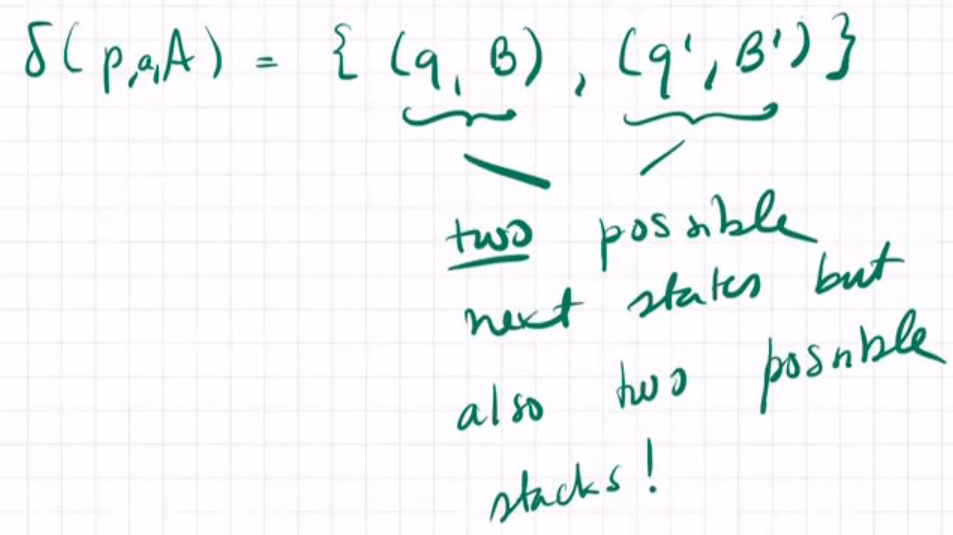 δ(p,a,A) = {(q, B), (q', B')}
two possible
next states but
also two possible
stacks!